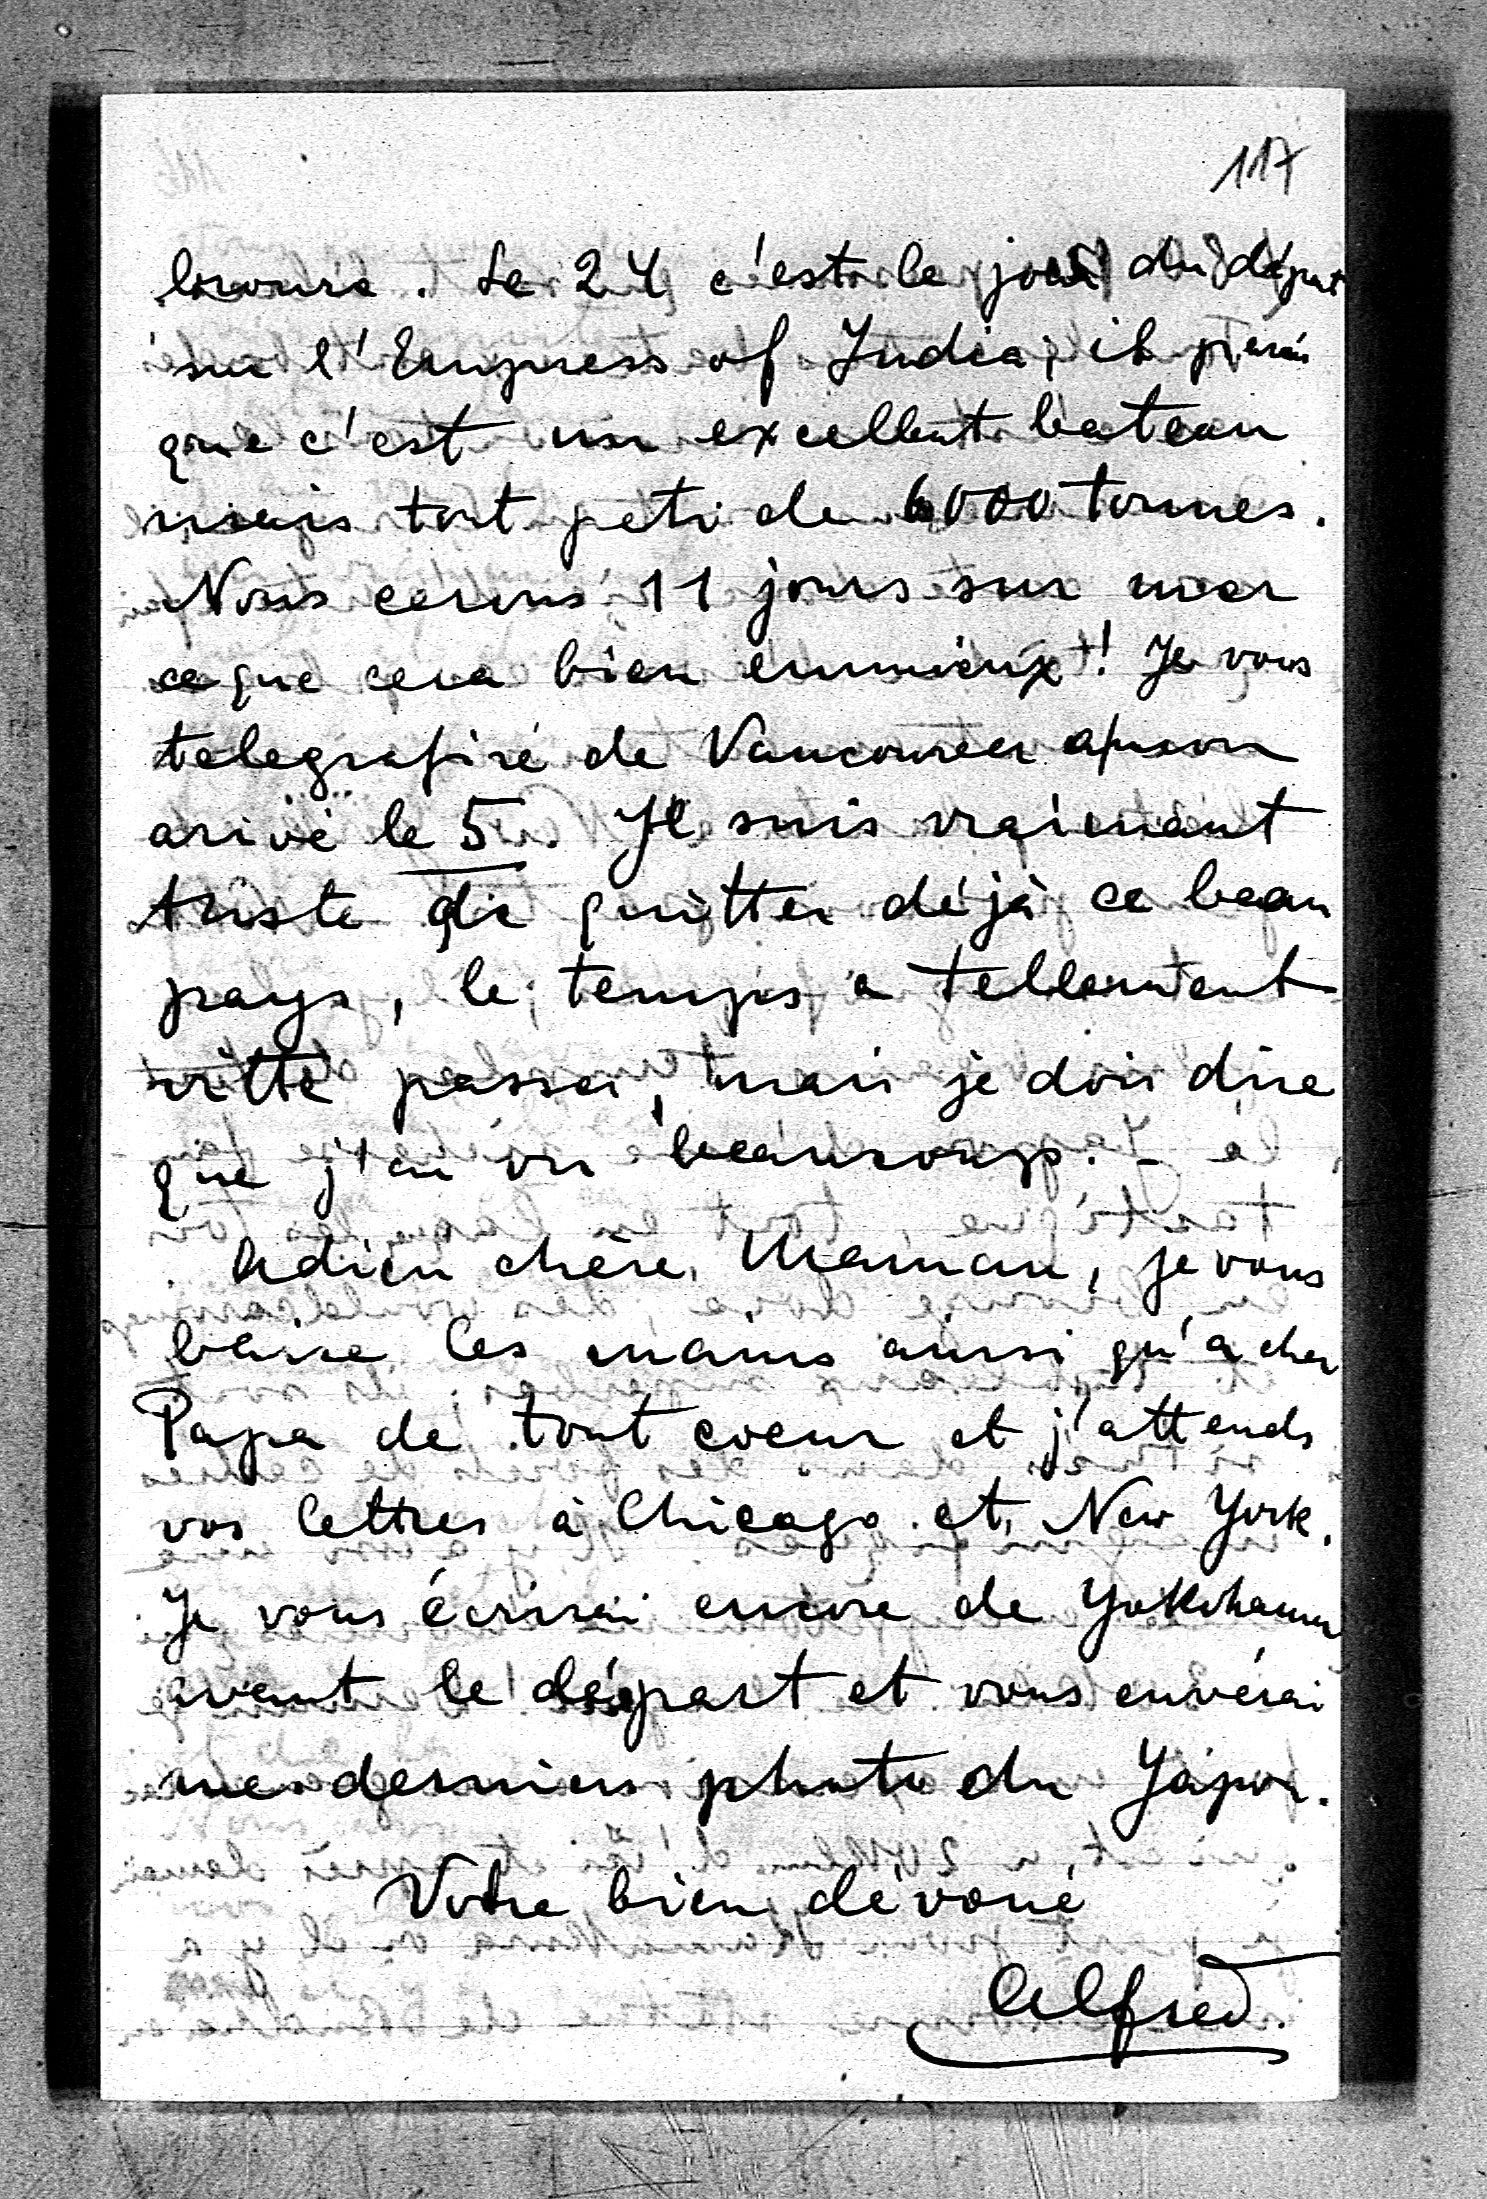 117
Le 24 c'est le jour du départ
sur l'Empress of India; il parais
que c'est un excellent bateau
mais tout peti de 6000 tonnes.
Nous cerons 11 jours sur mer
ce que cera bien ennuieux! Je vous
telegrafiré de Vancouver
arivé le 5. Je suis vraimant
triste de quitter déjà ce beau
pays, le temps a tellement
vitte passer, mais je dois dire
que j'ai vu beaucoup. –
Adieu chère Maman, je vous
baise les mains ainsi qu'a cher
Papa de tout coeur et j'attends
vos lettres à Chicago et New York.
Je vous écrirai encore de Yokohama
avant le départ et vous enverai
mes derniers photo du Japon.
Votre bien dévoué
Alfred.